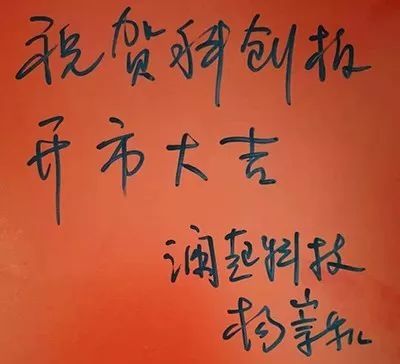 祝贺科创板
开市大吉
澜起科技
杨崇和